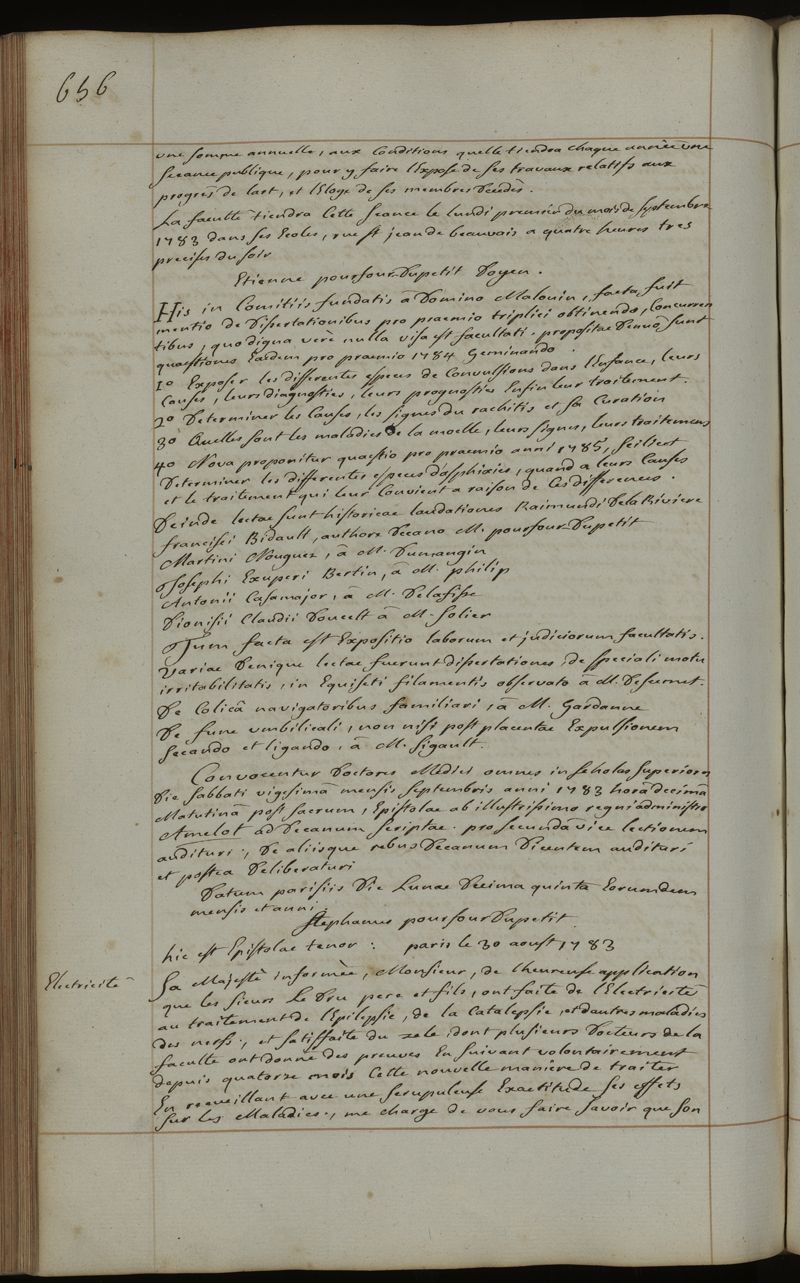 656
une somme annuelle, aux Conditions quelle tiendra chaque année une
seeance publique, pour y faire l'Exposé de ses travaux relatifs aux
progrès de lart, et l'Eloge de ses membres decedes.
La faculté tiendra Cette seance le lundi premier du mois de septembre
1783 dans ses Ecoles, rue st jean de beauvais a quatre heures tres
precises du soir
Etienne pourfour Dupetit Doyen.
His in Comitiis fundatis à Domino Malouin, facta fuit
mentio de Dissertationibus pro praemio triplici obtinendo, Concurren
tibus, quo digna verè nulla visa est facultati. propositae denuò sunt
quaestiones Eaedem pro praemio 1784 Geminando.
1o Exposer les differentes especes de Convulsions dans l'Enfance, leurs
Causes, leurs diagnostics, leurs prognostics Enfin leur traitement.
2o Determiner les Causes, les signes du rachitis et sa Curation
3o Quelles sont les maladies de la moelle, leurs signes, leurs traitemens
4o Nova proponitur quaestio pro praemio anni 1785, scilicet
Determiner les differentes especes d'asphixies, quand a leurs Causes
et le traitement qui leur Convient a raison de Ces differences.
Deinde lectae sunt historicae laudationes Raimundi DelaRiviere
francisci Bidault, authore Decano M. pourfour-Dupetit
Martini Nouguez, à M. Dumangin
Josephi Exuperi Bertin, à M. philip
Antonii Casamajor, à M. Delafisse
Dionisii Claudii Doucet à M. Solier
Tum facta est Expositio laborum et judiciorum facultatis.
Variae Denique lectae fuerunt dissertationes, de speciali motu
irritabilitatis, in Equiseti filamentis observato à M. Descemet.
De Colicâ navigatoribus familiari, à M. Gardanne
De fune umbilicali, non nisi post placentae Expulsionem
secando et ligando, à M. Sigault.
Convocentur Doctores Medici omnes in scholas superiores
die sabbati vigesimâ mensis septembris anni 1783 horâ decimâ
Matutinâ post sacrum, Epistolae ab illustrissimo regni administro
Amelot ad Decanum scriptae. pro secundâ vice lectionem
audituri, De aliisque rebus Decanum Dicentem audituri
et postea Deliberaturi
Datum parisiis Die Lunae Decima quinta Eorumdem
mensis et anni.
Stephanus pourfour Dupetit
hic est Epistolae tenor : paris le 30 aoust 1783
Electricité
Sa Majesté informée, Monsieur, de l'heureuse application
que les sieurs Le Dru pere et fils, ont faite de l'Electricité
au traitement de l'Epilepsie, de la Catalepsie, et dautres maladies
des nerfs, et satisfaite du zele dont plusieurs Docteurs de la
faculté ont donné des preuves En suivant volontairement
depuis quatorze mois Cette nouvelle maniere de traiter
En recueillant avec une scrupuleuse Exactitude ses effets
sur les Maladies, me charge de vous faire savoir que son